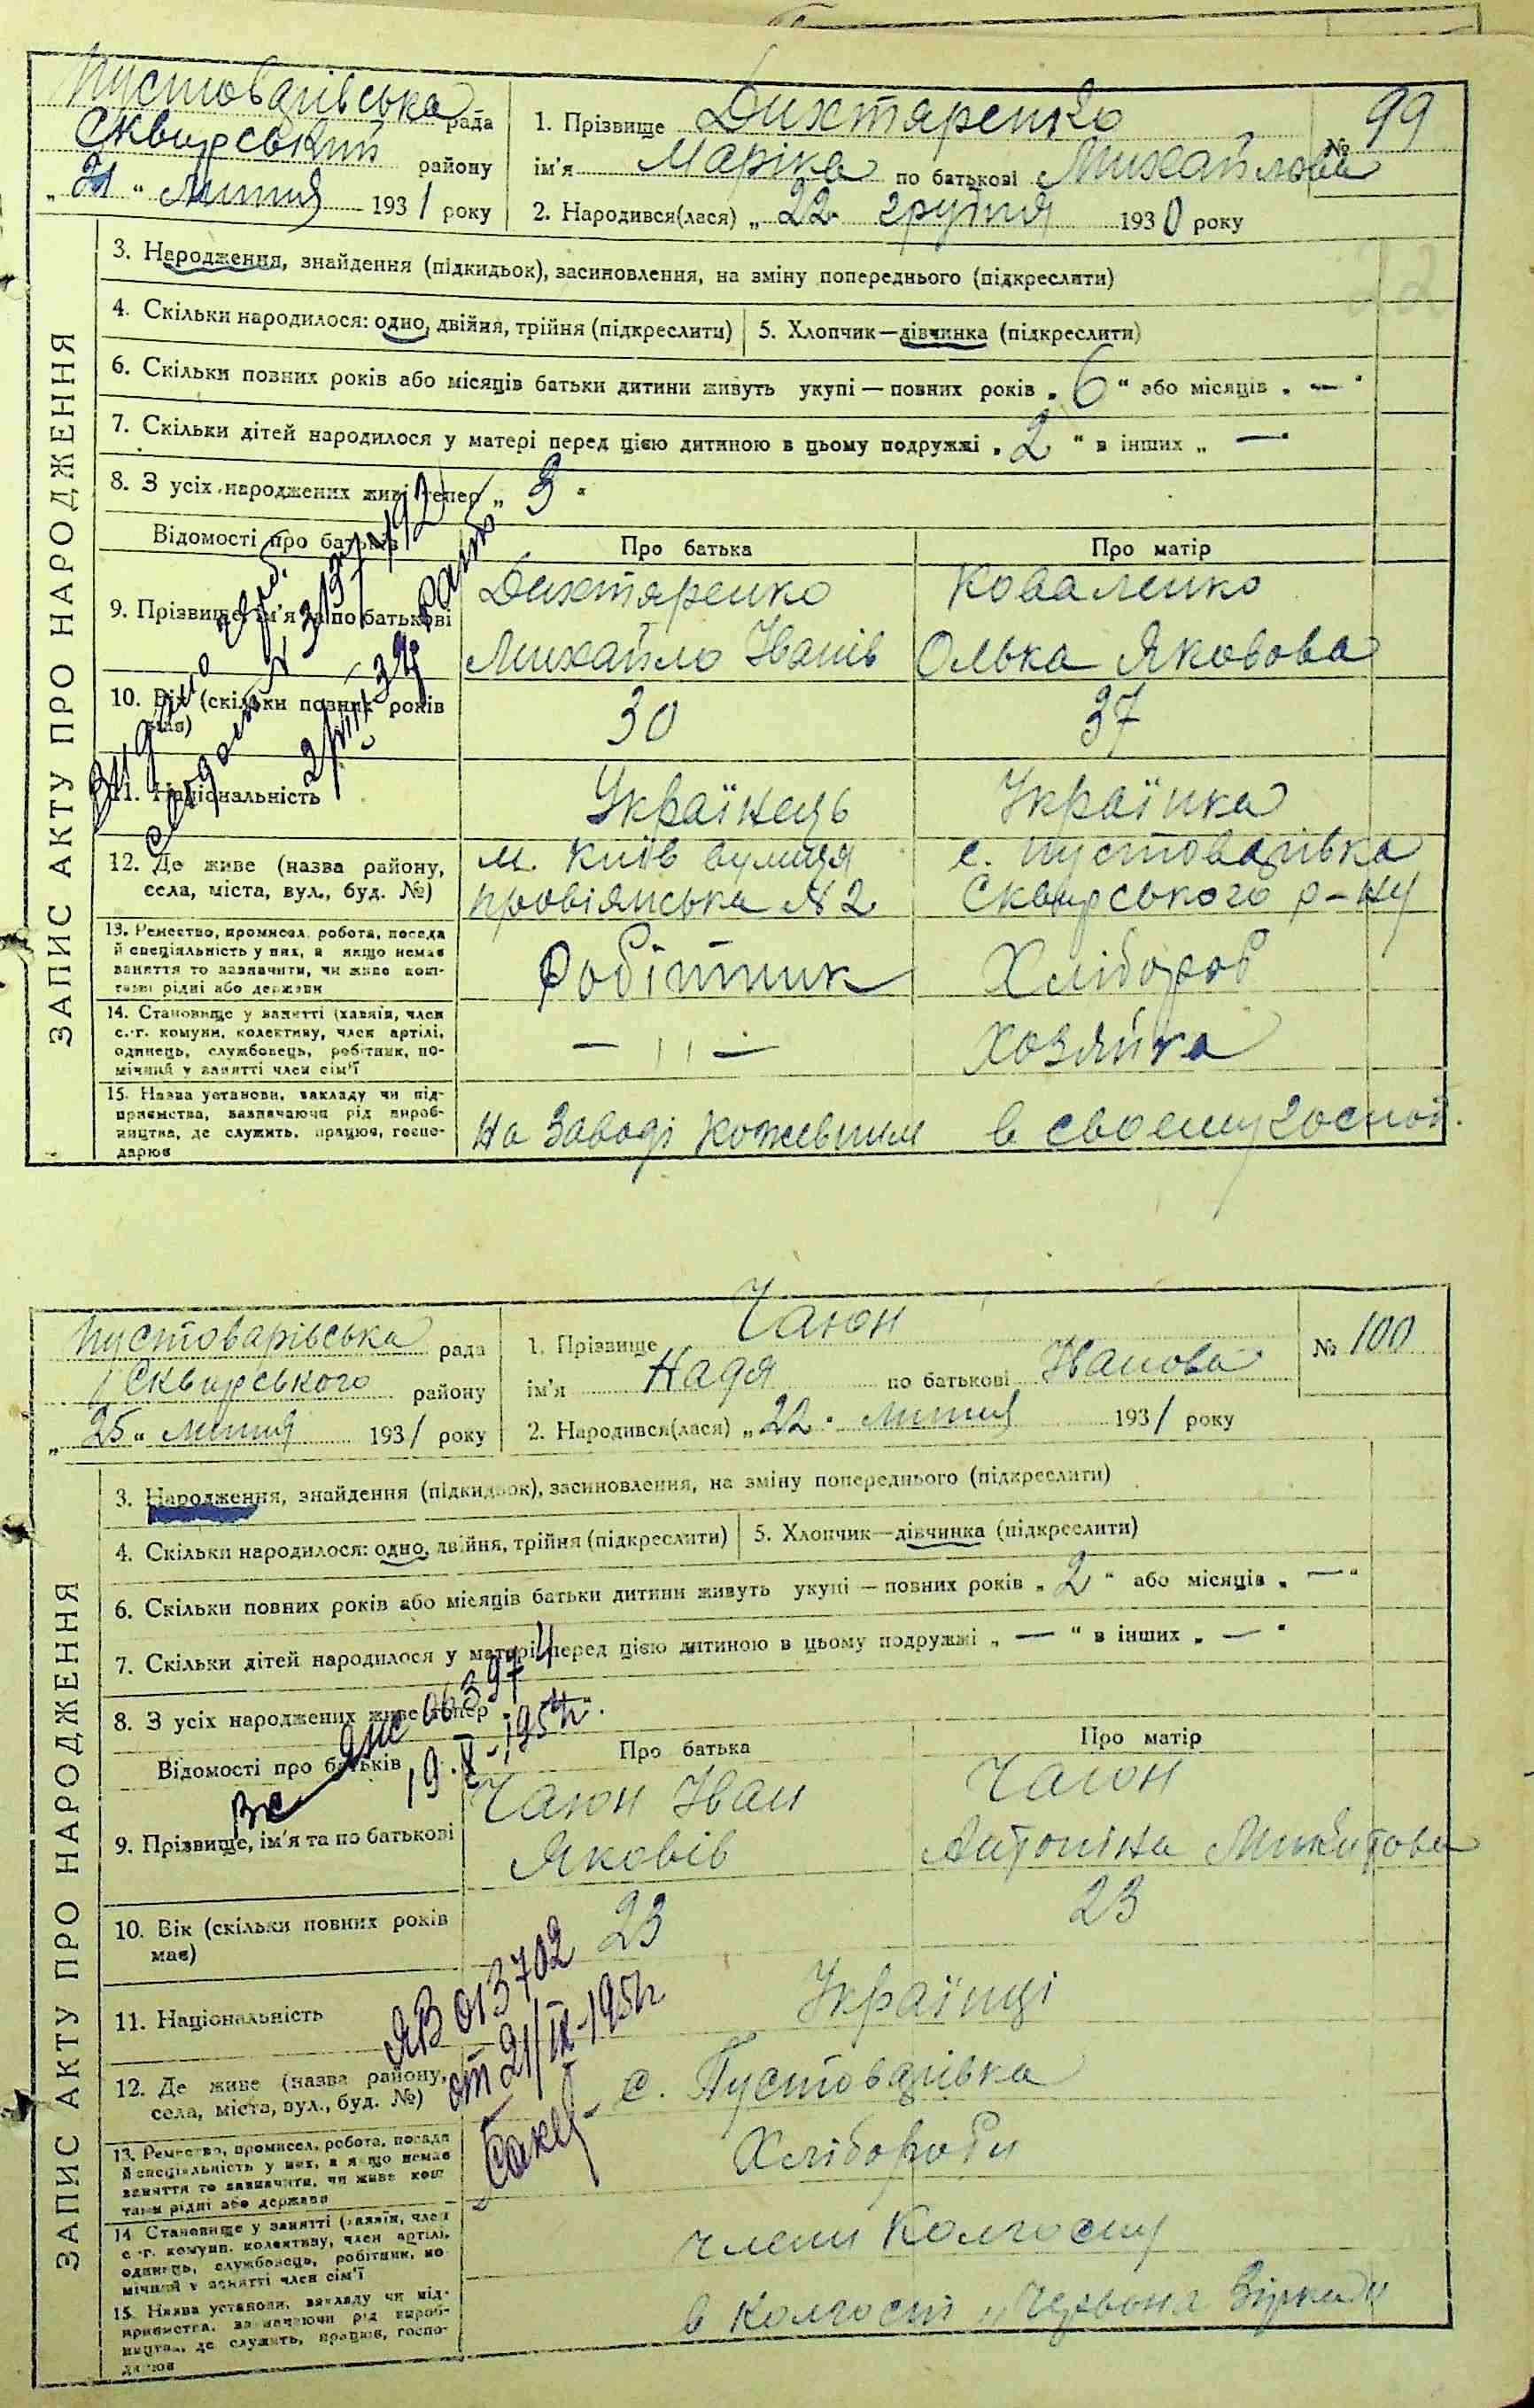 Пустоварівська рада
Сквирський району
" 21 " Лютня 1931 року
1. Прізвище Дихтяренко
№ 99
ім'я Маріка по батькові Михайлова
2. Народився(лася) " 22 " грудня 1930 року
ЗАПИС АКТУ ПРО НАРОДЖЕННЯ
3. Народження, знайдення (підкидьок), засиновлення, на зміну попереднього (підкреслити)
4. Скільки народилося: одно, двійня, трійня (підкреслити)
5. Хлопчик—дівчинка (підкреслити)
6. Скільки повних років або місяців батьки дитини живуть укупі — повних років „ 6 “ або місяців „ — “
7. Скільки дітей народилося у матері перед цією дитиною в цьому подружжі „ 2 “ в інших „ — “
8. З усіх народжених живі тепер „ 3 “
Відомості про батьків
Про батька
Про матір
9. Прізвище, ім'я та по батькові
Дихтяренко
Михайло Іванів
Коваленко
Олька Яковова
10. Вік (скільки повних років має)
30
37
11. Національність
Українець
Українка
12. Де живе (назва району, села, міста, вул., буд. №)
м. Київ вулиця
провіянська №2
с. Пустоварівка
Сквирського р-ну
13. Ремество, промисел, робота, посада й спеціяльність у них, а якщо немає заняття то зазначити, чи живе коштами рідні або держави
Робітник
Хлібороб
14. Становище у занятті (хазяїн, член с.-г. комуни, колективу, член артілі, одинець, службовець, робітник, помічний у занятті член сім'ї
— " —
Хозяйка
15. Назва установи, закладу чи підприємства, зазначаючи рід виробництва, де служить, працює, господарює
На Заводі Кожевним
в своєму госпой.
Пустоварівська рада
Сквирського району
„ 25 “ Лютня 1931 року
1. Прізвище Чаюн
№ 100
ім'я Надя по батькові Іванова
2. Народився(лася) „ 22 “ Лютня 1931 року
ЗАПИС АКТУ ПРО НАРОДЖЕННЯ
3. Народження, знайдення (підкидьок), засиновлення, на зміну попереднього (підкреслити)
4. Скільки народилося: одно, двійня, трійня (підкреслити)
5. Хлопчик—дівчинка (підкреслити)
6. Скільки повних років або місяців батьки дитини живуть укупі — повних років „ 2 “ або місяців „ — “
7. Скільки дітей народилося у матері перед цією дитиною в цьому подружжі „ — “ в інших „ — “
8. З усіх народжених живе тепер
Відомості про батьків
Про батька
Про матір
19.X-195
9. Прізвище, ім'я та по батькові
Чаюн Іван
Яковів
Чаюн
Антоніна Микитова
10. Вік (скільки повних років має)
23
23
11. Національність
Українці
ЯВ 013702
от 21/IX-195
12. Де живе (назва району, села, міста, вул., буд. №)
с. Пустоварівка
13. Ремество, промисел, робота, посада й спеціяльність у них, а якщо немає заняття то зазначити, чи живе коштами рідні або держави
Хлібороби
14. Становище у занятті (хазяїн, член с.-г. комуни, колективу, член артілі, одинець, службовець, робітник, помічний у занятті член сім'ї
члени Колгоспу
15. Назва установи, закладу чи підприємства, зазначаючи рід виробництва, де служить, працює, господарює
в Колгоспі „Червона Зірка"